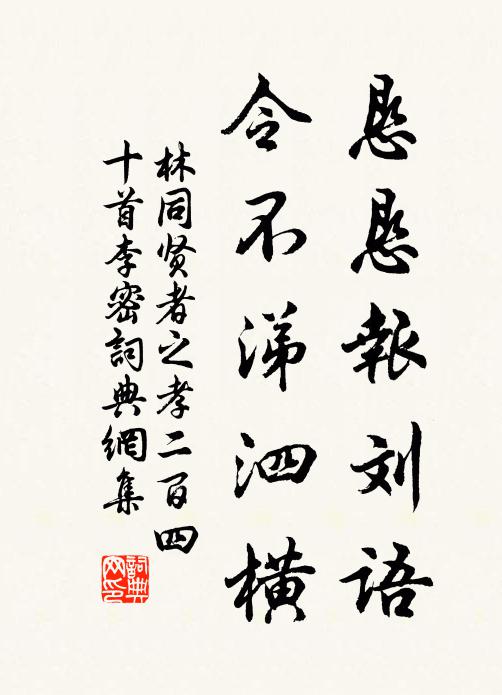 恳恳報刘語
令不涕泗橫
林同贤者之孝二百四
十首李密詞典網集
詞典
网印